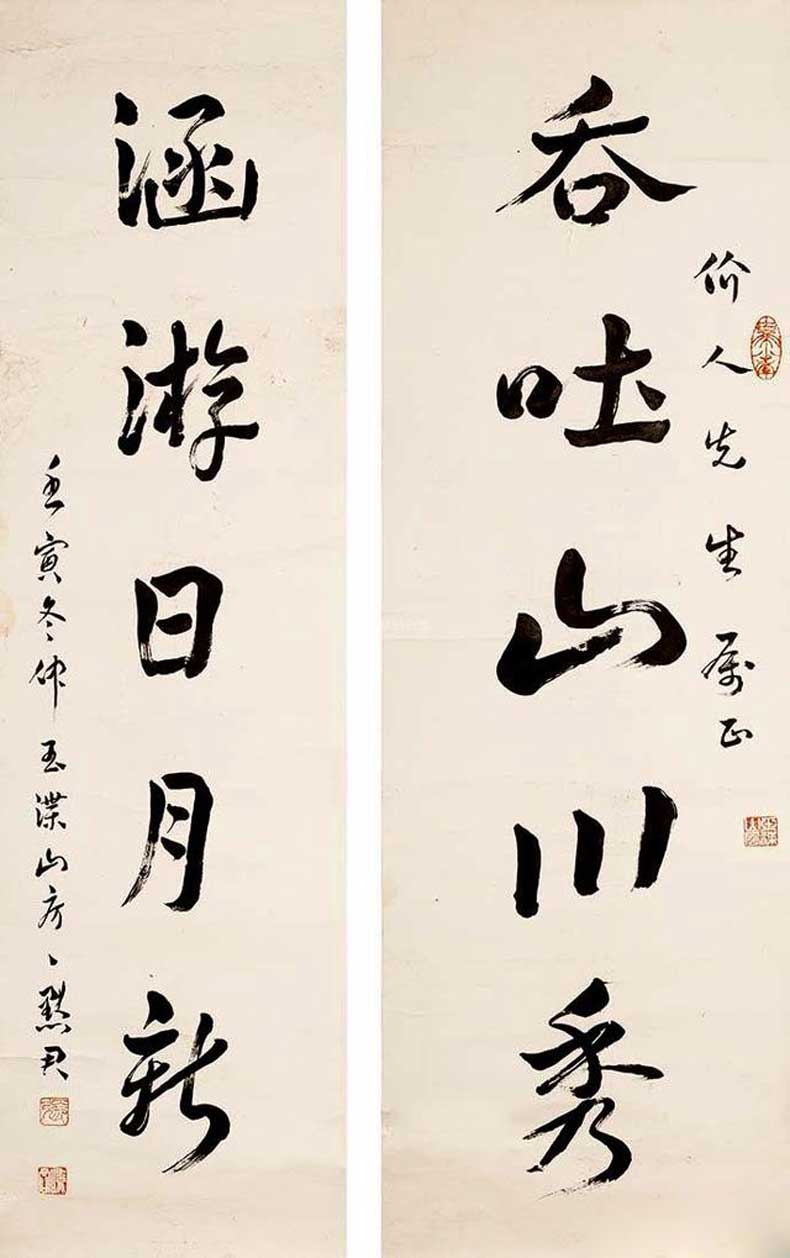 价人先生属正
吞吐山川秀
涵游日月新
壬寅冬仲玉渫山房默君